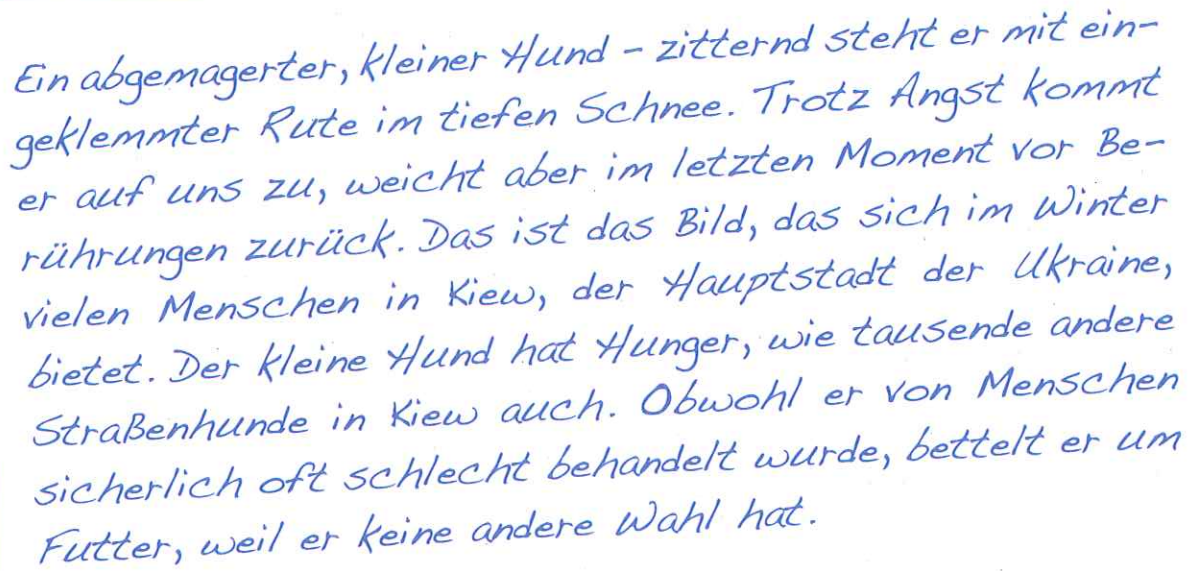 Ein abgemagerter, kleiner Hund – zitternd steht er mit ein-
geklemmter Rute im tiefen Schnee. Trotz Angst kommt
er auf uns zu, weicht aber im letzten Moment vor Be-
rührungen zurück. Das ist das Bild, das sich im Winter
vielen Menschen in Kiew, der Hauptstadt der Ukraine,
bietet. Der kleine Hund hat Hunger, wie tausende andere
Straßenhunde in Kiew auch. Obwohl er von Menschen
sicherlich oft schlecht behandelt wurde, bettelt er um
Futter, weil er keine andere Wahl hat.